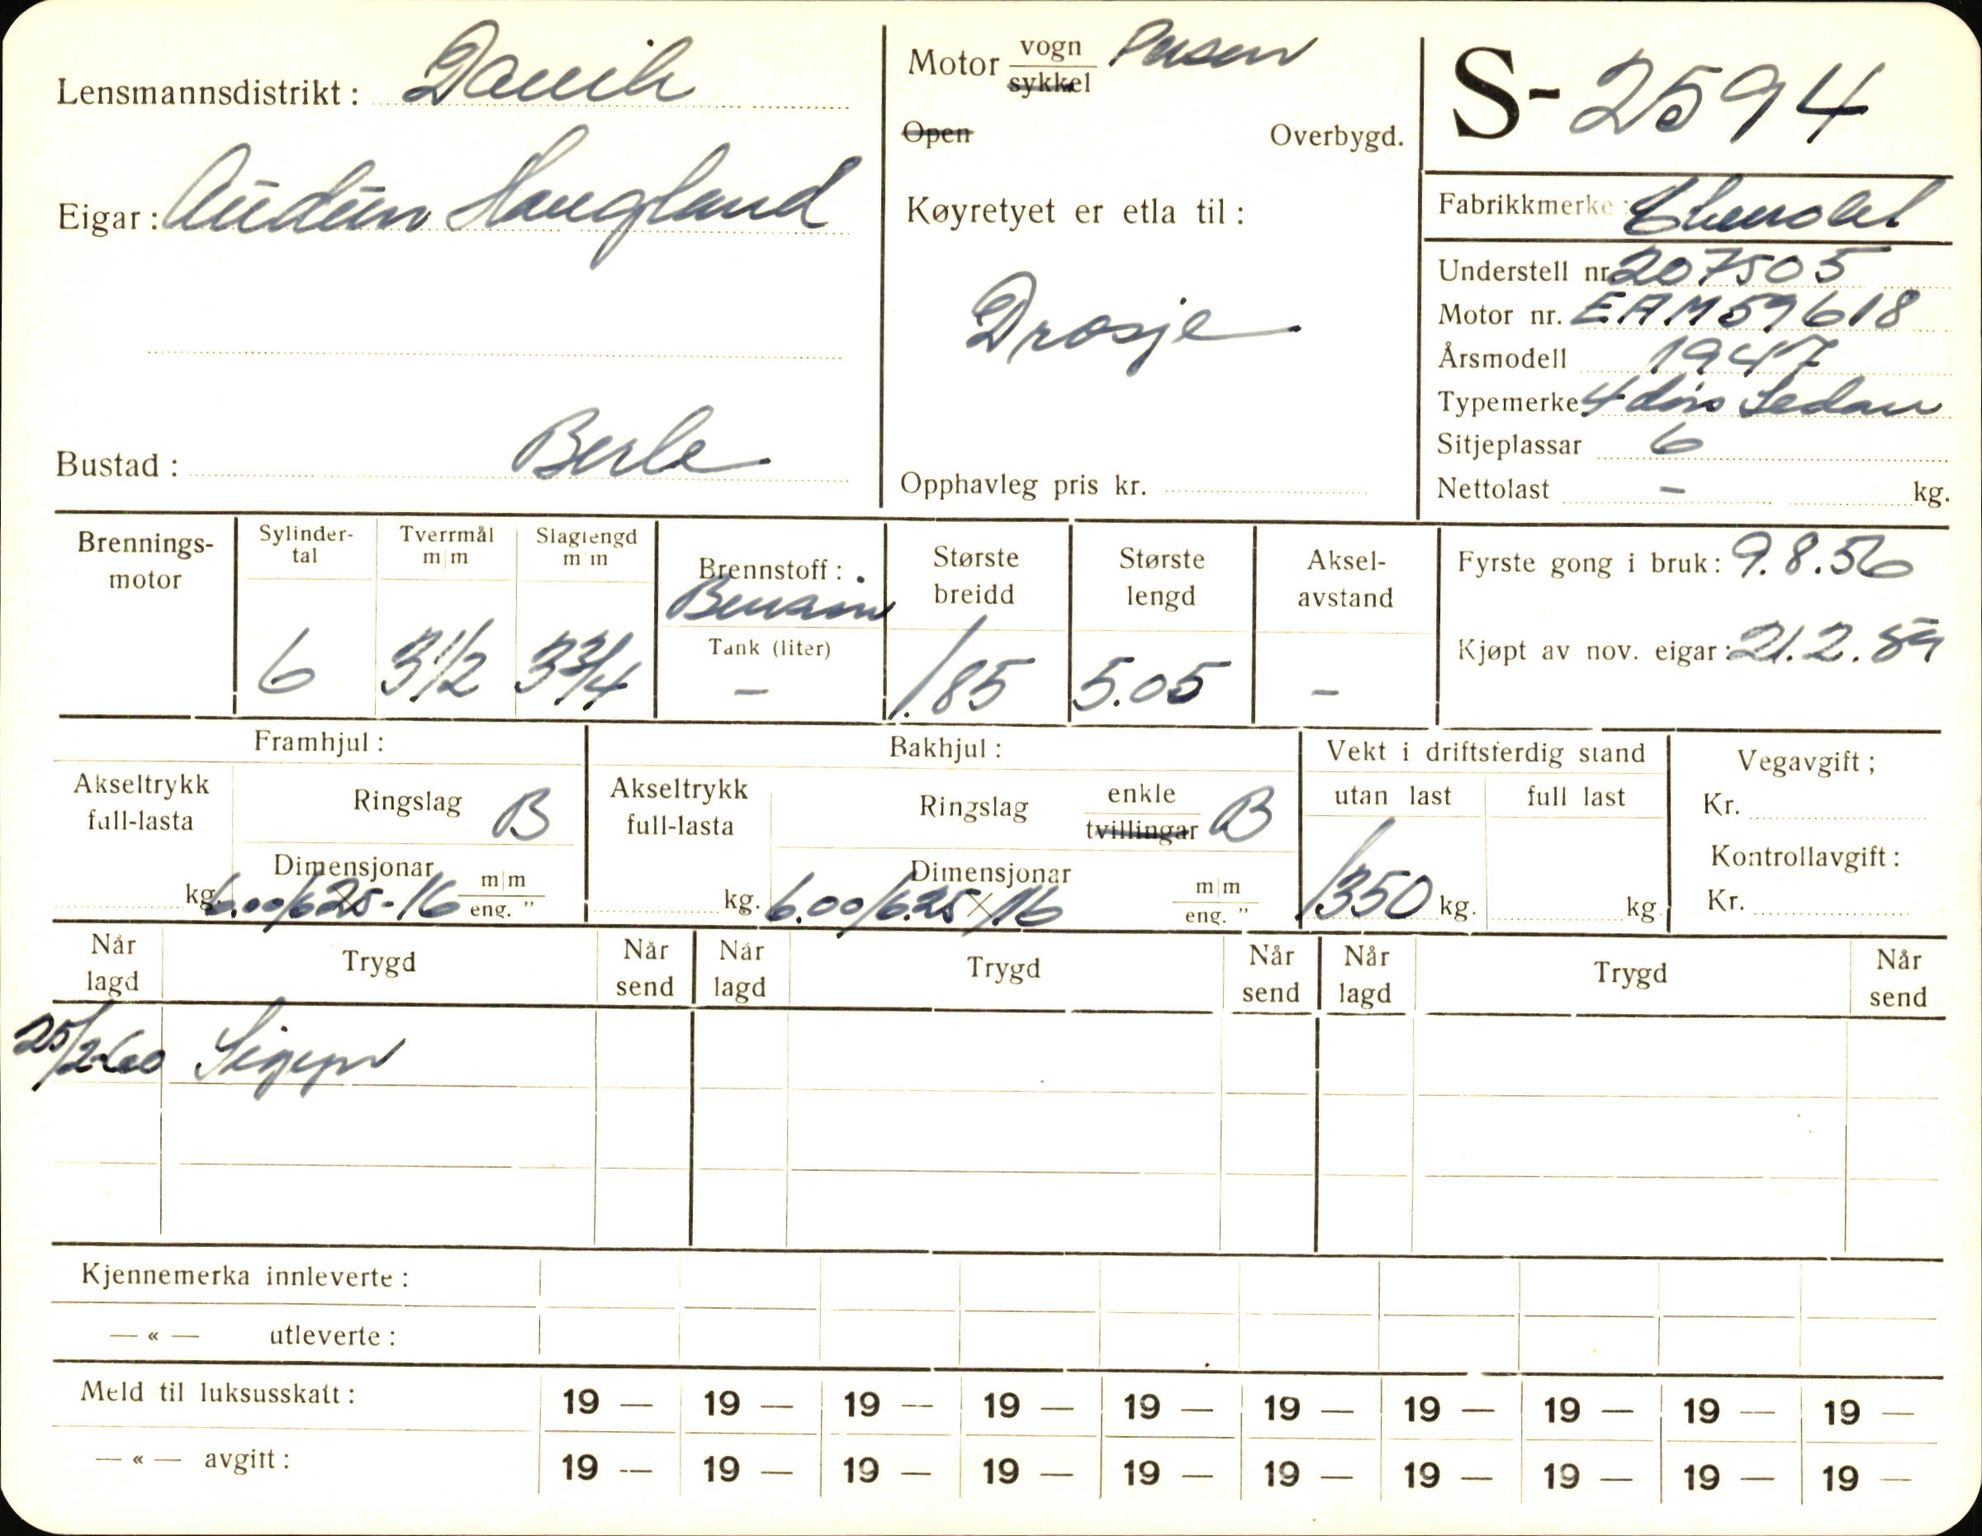 Lensmannsdistrikt: Davik
Eigar: Audun Haugland
Bustad: Berle
Motor vogn Person
sykkel
Open Overbygd.
Køyretyet er etla til:
Drosje
Opphavleg pris kr.
S-2594
Fabrikkmerke: Chevrolet
Understell nr. 207505
Motor nr. EAM59618
Årsmodell 1947
Typemerke 4 dørs Sedan
Sitjeplassar 6
Nettolast - kg.
Brennings-
motor
Sylinder-
tal
6
Tverrmål
m|m
3 1/2
Slaglengd
m|m
3 3/4
Brennstoff:
Bensin
Tank (liter)
-
Største
breidd
1.85
Største
lengd
5.05
Aksel-
avstand
-
Fyrste gong i bruk: 9.8.56
Kjøpt av nov. eigar: 21.2.59
Framhjul:
Akseltrykk
full-lasta
kg.
Ringslag B
Dimensjonar
6.00/625-16 m|m
eng. "
Bakhjul:
Akseltrykk
full-lasta
kg.
Ringslag enkle B
tvillingar
Dimensjonar
6.00/6.25 x 16 m|m
eng. "
Vekt i driftsferdig stand
utan last full last
1350 kg. kg
Vegavgift;
Kr.
Kontrollavgift:
Kr.
Når
lagd Trygd Når
send Når
lagd Trygd Når
send Når
lagd Trygd Når
send
25/2-60
Kjennemerka innleverte:
— « — utleverte:
Meld til luksusskatt: 19 — 19 — 19 — 19 — 19 — 19 — 19 — 19 — 19 — 19 —
— « — avgift: 19 — 19 — 19 — 19 — 19 — 19 — 19 — 19 — 19 — 19 —